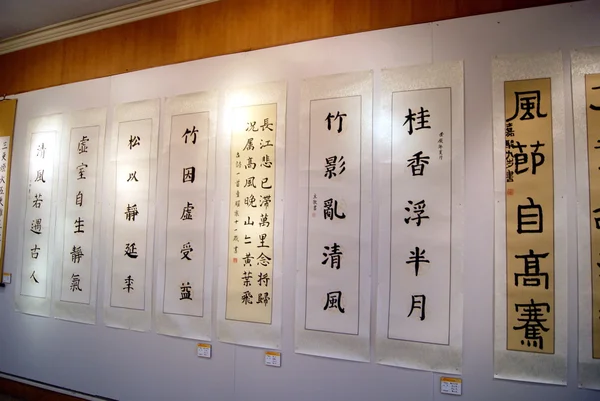 風節自高騫
桂香浮半月
竹影亂清風
長江悲已滯萬里念將歸
況屬高風晚山山黃葉飛
右詩一首 十一歲書
竹因虛受益
松以靜延秊
虛室自生靜氣
清風若遇古人